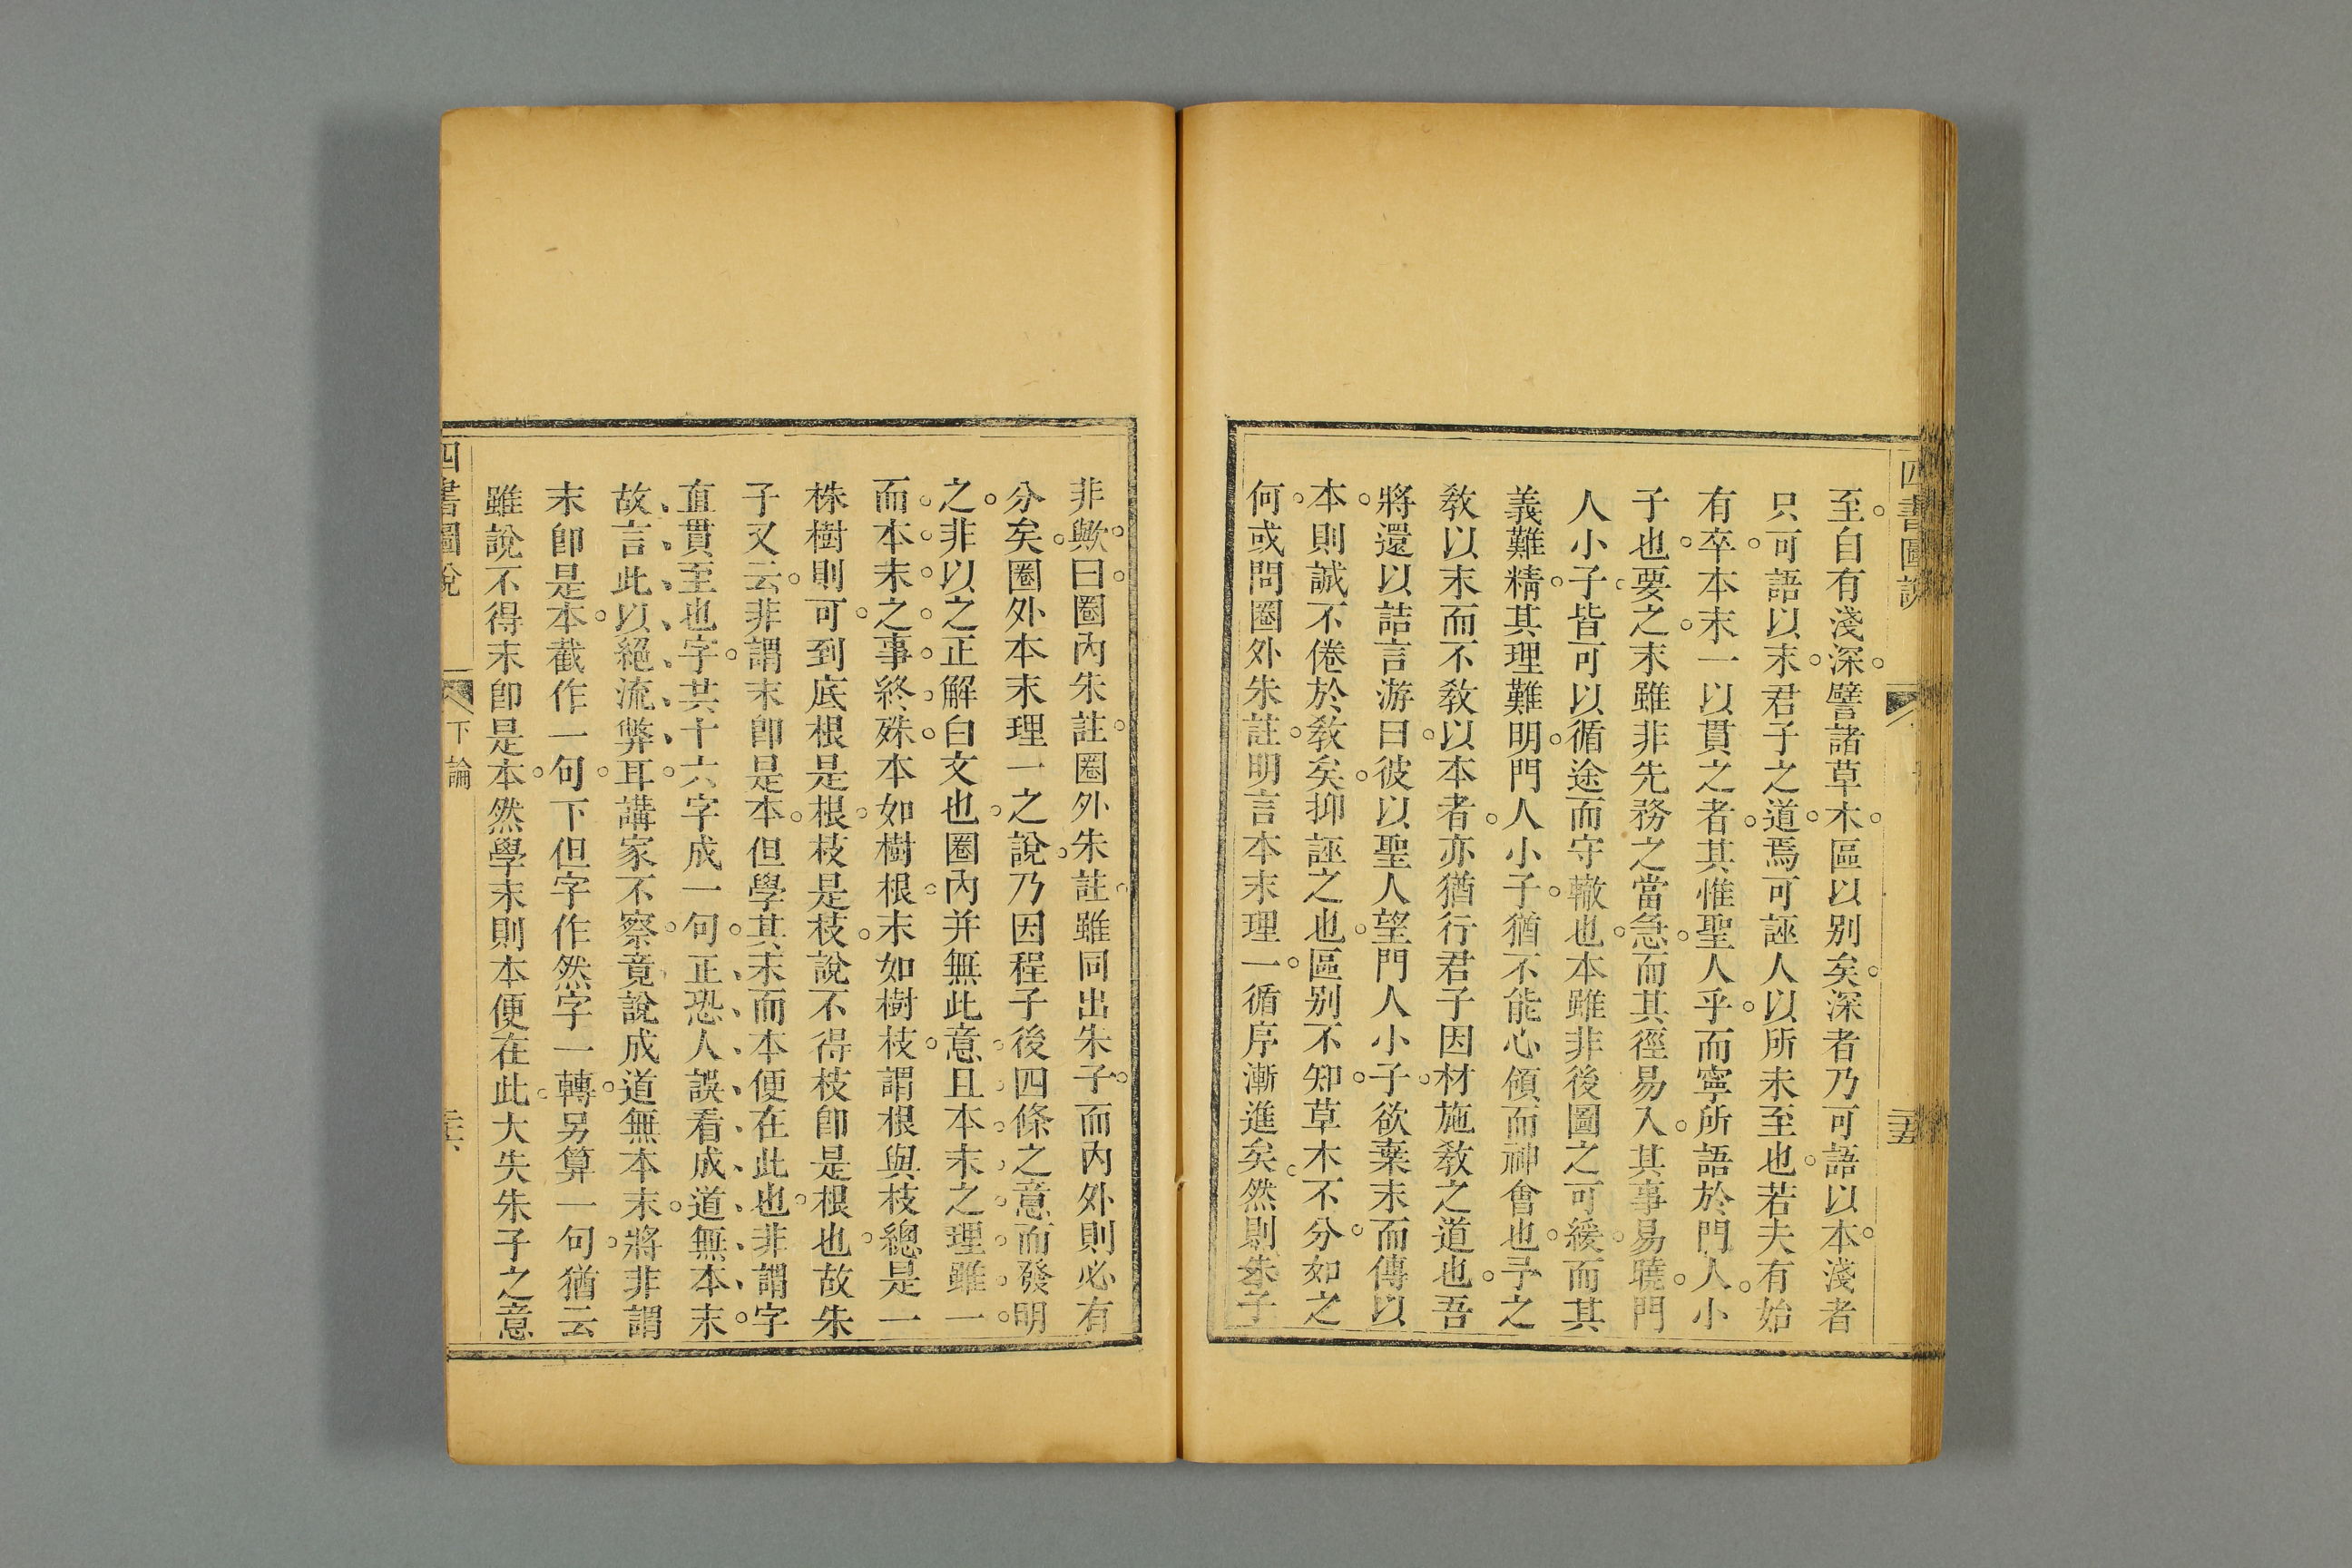 四書圖說
三五
至自有淺深譬諸草木區以別矣深者乃可語以本淺者
只可語以末君子之道焉可誣人以所未至也若夫有始
有卒本末一以貫之者其惟聖人乎而寧所語於門人小
子也要之末雖非先務之當急而其徑易入其事易曉門
人小子皆可以循途而守轍也本雖非後圖之可緩而其
義難精其理難明門人小子猶不能心領而神會也予之
敎以末而不敎以本者亦猶行君子因材施敎之道也吾
將還以詰言游曰彼以聖人望門人小子欲棄末而傳以
本則誠不倦於敎矣抑誣之也區別不知草木不分如之
何或問圈外朱註明言本末理一循序漸進矣然則朱子
非歟曰圈內朱註圈外朱註雖同出朱子而內外則必有
分矣圈外本末理一之說乃因程子後四條之意而發明
之非以之正解白文也圈內并無此意且本末之理雖一
而本末之事終殊本如樹根末如樹枝謂根與枝總是一
株樹則可到底根是根枝是枝說不得枝卽是根也故朱
子又云非謂末卽是本但學其末而本便在此也非謂字
直貫至也字共十六字成一句正恐人誤看成道無本末
故言此以絕流弊耳講家不察竟說成道無本末將非謂
末卽是本截作一句下但字作然字一轉另算一句猶云
雖說不得末卽是本然學末則本便在此大失朱子之意
四書圖說
下論